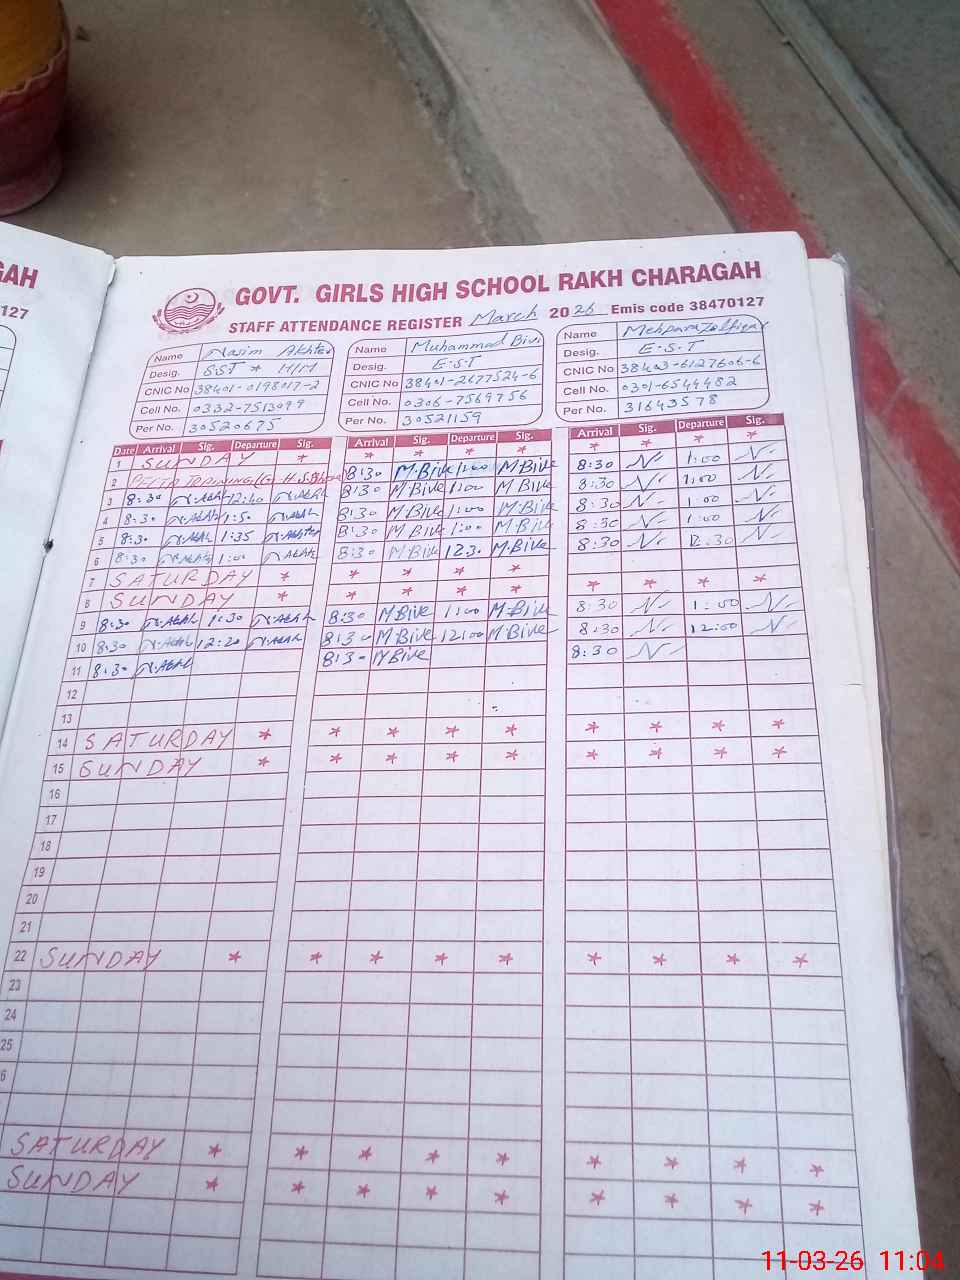 GAH
127
GOVT. GIRLS HIGH SCHOOL RAKH CHARAGAH
STAFF ATTENDANCE REGISTER March 2026 Emis code 38470127
Name Nasim Akhter Name Muhammad Bivi Name Mehpara
Desig. SST * H/M Desig. E.S.T Desig. E.S.T
CNIC No 38401-0198017-2 CNIC No 38401-2677524-6 CNIC No 38403-6127606-6
Cell No. 0332-7513099 Cell No. 0306-7569756 Cell No. 0301-6549482
Per No. 30520675 Per No. 30521159 Per No. 31643578
Date Arrival Sig. Departure Sig. Arrival Sig. Departure Sig. Arrival Sig. Departure Sig.
1 SUNDAY * * * * * * * * *
2 TRAINING 8:30 M.Bive 1:00 M Bive 8:30 N. 1:00 N.
3 8:30 N.Akh 12:40 N.Akh 8:30 M Bive 1:00 M Bive 8:30 N. 1:00 N.
4 8:30 N.Akh 1:50 N.Akh 8:30 M Bive 1:00 M Bive 8:30 N. 1:00 N.
5 8:30 N.Akh 1:35 N.Akhter 8:30 M Bive 1:00 M Bive 8:30 N. 1:00 N.
6 8:30 N.Akhter 1:00 N.Akh 8:30 M Bive 12:30 M.Bive 8:30 N. 12:30 N.
7 SATURDAY * * * * *
8 SUNDAY * * * * * * * * *
9 8:30 N.Akh 1:30 N.Akh 8:30 M Bive 1:00 M Bive 8:30 N. 1:00 N.
10 8:30 N.Akh 12:20 N.Akh 8:30 M Bive 12:00 M Bive 8:30 N. 12:00 N.
11 8:30 N.Akh 8:30 M Bive 8:30 N.
12
13
14 SATURDAY * * * * * * * * *
15 SUNDAY * * * * * * * * *
16
17
18
19
20
21
22 SUNDAY * * * * * * * * *
23
24
25
6
SATURDAY * * * * * * * * *
SUNDAY * * * * * * * * *
11-03-26 11:04